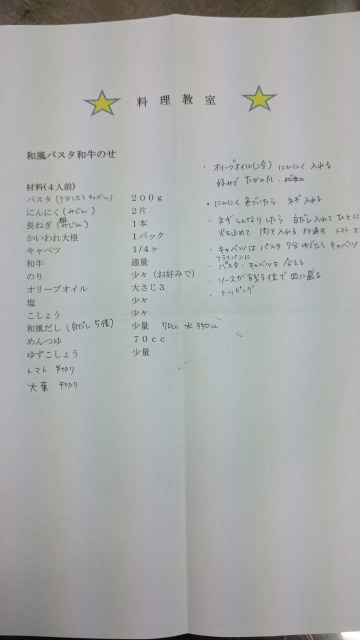 料理教室
和風パスタ和牛のせ
材料(4人前)
パスタ (7分したらキャベツ) 200g
にんにく (みじん) 2片
長ねぎ (みじん) 1本
かいわれ大根 1パック
キャベツ 1/4ヶ
和牛 適量
のり 少々 (お好みで)
オリーブオイル 大さじ3
塩 少々
こしょう 少々
和風だし (白だし5倍) 少量 70cc 水350cc
めんつゆ 70cc
ゆずこしょう 少量
トマト 半切り
大葉 千切り
・オリーブオイル にんにく 入れる
好みで たかのつめ
・にんにく 色づいたら ネギ 入れる
・ネギ しんなりしたら 白だし入れて ひとに
火を止めて 肉を入れる トマト 大
・キャベツは パスタ 7分 ゆでたら キャベツ
・フライパンに パスタ・キャベツを 合える
・ソースが 皿に盛る
・トッピング